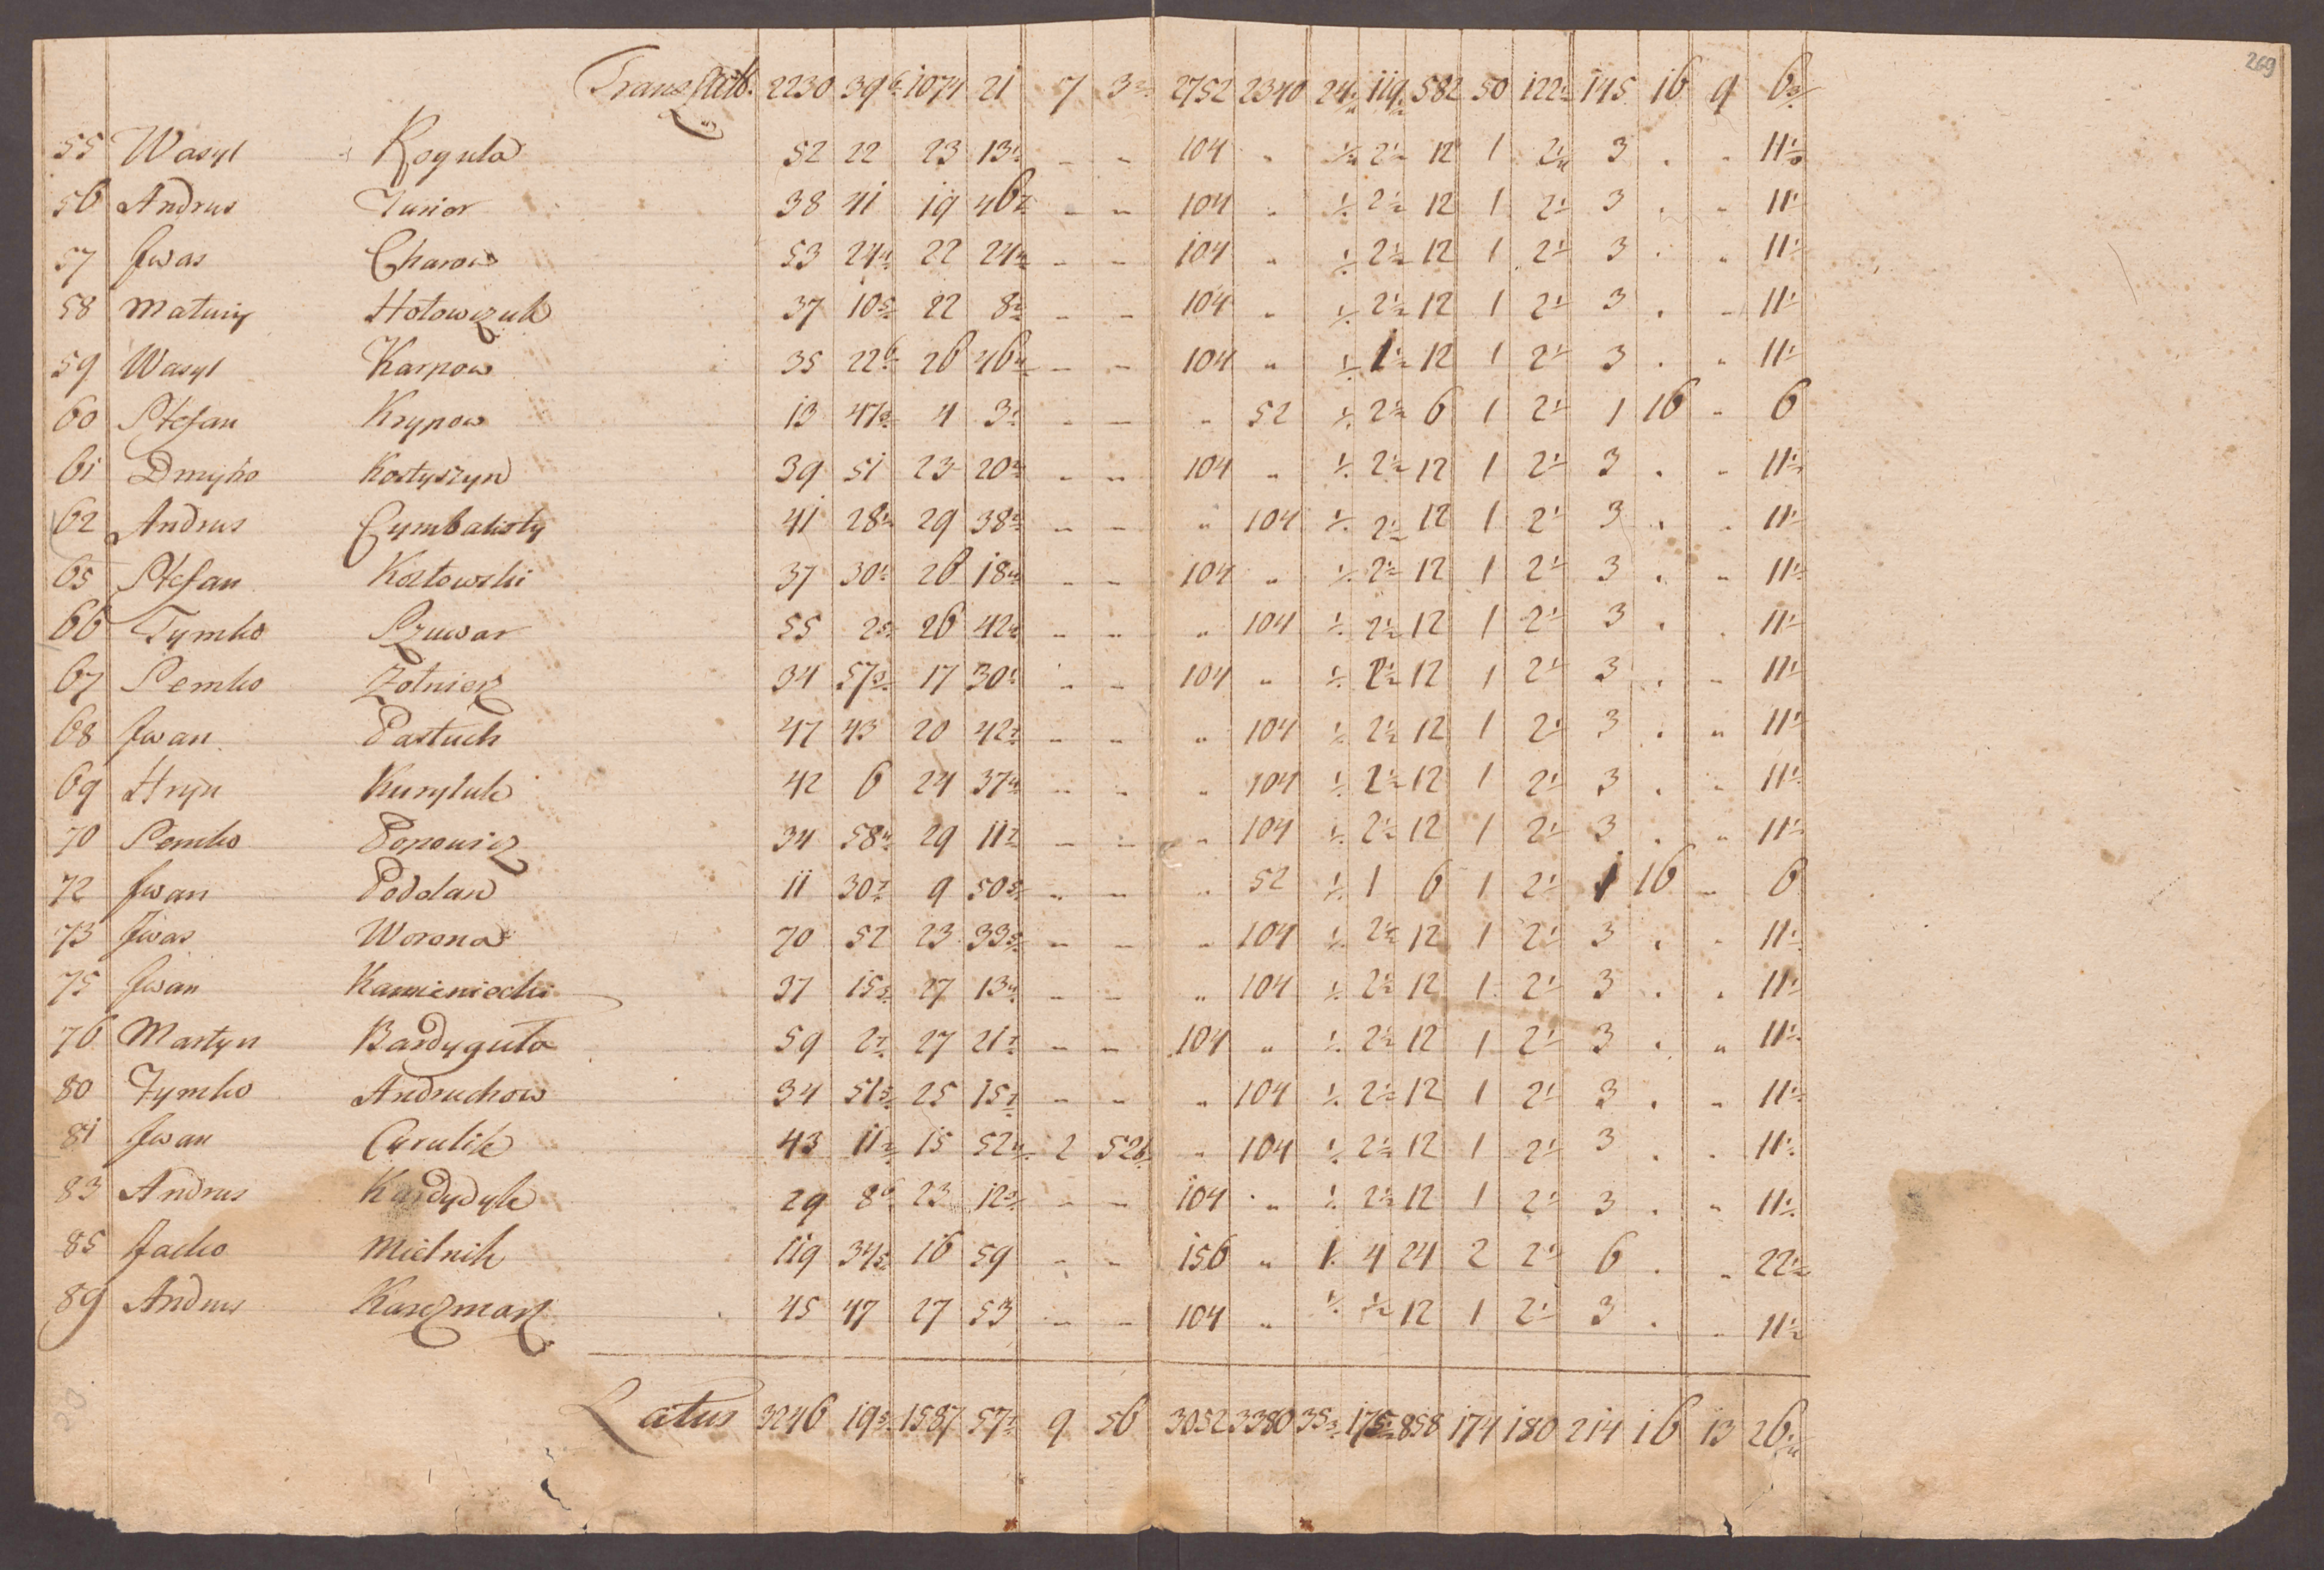 269
Transport. 2230 39 6/ 1074 21 7 3 2752 2340 24 119 582 50 122 145 16 9 6
55 Wasyl Regula 52 22 23 13 - - 104 „ 1/2 2 1/2 12 1 2 1/2 3 . „ 11 1/2
56 Andrus Junior 38 41 19 46 - - 104 „ 1/2 2 1/2 12 1 2 1/2 3 . „ 11 1/2
57 Jwas Charow 53 24 4/ 22 24 4/ - - 104 „ 1/2 2 1/2 12 1 2 1/2 3 . „ 11 1/2
58 Matwij Hołowczuk 37 10 5/ 22 8 - - 104 „ 1/2 2 1/2 12 1 2 1/2 3 . „ 11 1/2
59 Wasyl Karpow 35 22 6/ 26 46 4/ - - 104 „ 1/2 1 1/2 12 1 2 1/2 3 . „ 11 1/2
60 Stefan Krypow 13 47 4 3 - - „ 52 1/2 2 1/2 6 1 2 1/2 1 16 „ 6
61 Dmytro Kostyszyn 39 51 23 20 - - 104 „ 1/2 2 1/2 12 1 2 1/2 3 . „ 11 1/2
62 Andrus Cymbalisty 41 28 29 38 - - „ 104 1/2 2 1/2 12 1 2 1/2 3 . „ 11 1/2
65 Stefan Kozłowski 37 30 26 18 - - 104 „ 1/2 2 1/2 12 1 2 1/2 3 . „ 11 1/2
66 Tymko Szuwar 55 2 26 42 - - „ 104 1/2 2 1/2 12 1 2 1/2 3 . „ 11 1/2
67 Semko Zołnierz 34 57 17 30 - - 104 „ 1/2 2 1/2 12 1 2 1/2 3 . „ 11 1/2
68 Jwan Pastuch 47 43 20 42 - - „ 104 1/2 2 1/2 12 1 2 1/2 3 . „ 11 1/2
69 Hryn Kuryluk 42 6 24 37 - - „ 104 1/2 2 1/2 12 1 2 1/2 3 . „ 11 1/2
70 Semko Popowicz 34 58 29 11 - - „ 104 1/2 2 1/2 12 1 2 1/2 3 . „ 11 1/2
72 Jwan Poddan 11 30 9 50 - - „ 52 1/2 1 6 1 2 1/2 1 16 „ 6
73 Jwas Worona 70 52 23 33 - - „ 104 1/2 2 1/2 12 1 2 1/2 3 . „ 11 1/2
75 Jwan Kamieniecki 37 15 27 13 - - „ 104 1/2 2 1/2 12 1 2 1/2 3 . „ 11 1/2
76 Martyn Bardyguła 59 2 27 21 - - 104 „ 1/2 2 1/2 12 1 2 1/2 3 . „ 11 1/2
80 Tymko Andruchow 34 51 25 15 - - „ 104 1/2 2 1/2 12 1 2 1/2 3 . „ 11 1/2
81 Jwan Curulik 43 11 15 52 2 52 „ 104 1/2 2 1/2 12 1 2 1/2 3 . „ 11 1/2
83 Andrus Kardydyk 29 8 23 12 - - 104 „ 1/2 2 1/2 12 1 2 1/2 3 . „ 11 1/2
85 Jacko Mielnik 119 34 16 59 - - 156 „ 1 4 24 2 2 1/2 6 . „ 22 1/2
89 Andrus Karczmarz 45 47 27 53 - - 104 „ 1/2 1/2 12 1 2 1/2 3 . „ 11 1/2
Latus 3246 19 1587 57 9 56 3052 3380 35 175 858 174 180 214 16 13 26